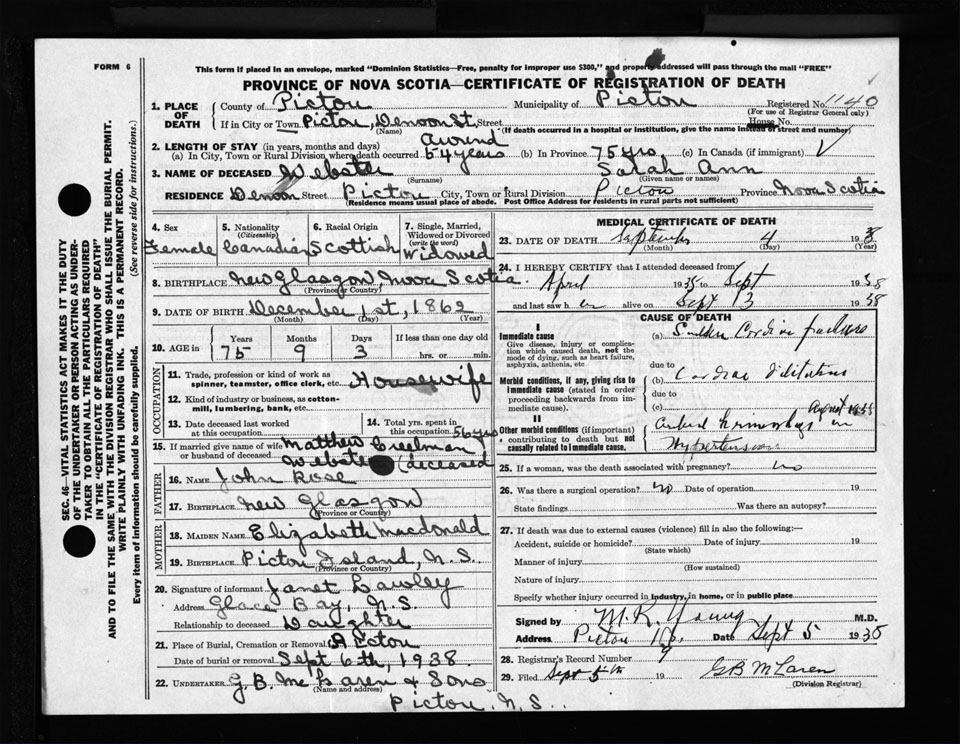 FORM 6
This form if placed in an envelope, marked "Dominion Statistics—Free, penalty for improper use $300," and properly addressed will pass through the mail "FREE"
PROVINCE OF NOVA SCOTIA—CERTIFICATE OF REGISTRATION OF DEATH
1. PLACE OF DEATH County of Pictou Municipality of Pictou Registered No. 1140
(For use of Registrar General only)
If in City or Town Pictou, Denoon St, Street House No.
(Name) (If death occurred in a hospital or institution, give the name instead of street and number)
2. LENGTH OF STAY (in years, months and days)
(a) In City, Town or Rural Division where death occurred Around 54 years (b) In Province 75 yrs (c) In Canada (if immigrant)
3. NAME OF DECEASED Webster Sarah Ann
(Surname) (Given name or names)
RESIDENCE Denoon Street Pictou City, Town or Rural Division Pictou Province Nova Scotia
(Residence means usual place of abode. Post Office Address for residents in rural parts not sufficient)
4. Sex Female
5. Nationality (Citizenship) Canadian
6. Racial Origin Scottish
7. Single, Married, Widowed or Divorced (write the word) Widowed
8. BIRTHPLACE New Glasgow, Nova Scotia.
(Province or Country)
9. DATE OF BIRTH December 1st, 1862
(Month) (Day) (Year)
10. AGE in Years 75 Months 9 Days 3 If less than one day old hrs. or min.
OCCUPATION
11. Trade, profession or kind of work as spinner, teamster, office clerk, etc. Housewife
12. Kind of industry or business, as cotton-mill, lumbering, bank, etc.
13. Date deceased last worked at this occupation
14. Total yrs. spent in this occupation 56 yrs
15. If married give name of wife or husband of deceased Matthew Creelman Webster (deceased
FATHER
16. NAME John Rose
17. BIRTHPLACE New Glasgow
(Province or Country)
MOTHER
18. MAIDEN NAME Elizabeth Macdonald
19. BIRTHPLACE Pictou Island, N.S.
(Province or Country)
20. Signature of informant Janet Lawley
Address Glace Bay, N.S.
Relationship to deceased Daughter
21. Place of Burial, Cremation or Removal Pictou
Date of burial or removal Sept 6th, 1938
22. UNDERTAKER G. B. McLaren & Sons
(Name and address)
Pictou, N.S.
MEDICAL CERTIFICATE OF DEATH
23. DATE OF DEATH September 4 193
(Month) (Day) (Year)
24. I HEREBY CERTIFY that I attended deceased from
April 19 to Sept 1938
and last saw h er alive on Sept 3 1938
CAUSE OF DEATH
I
Immediate cause
Give disease, injury or complication which caused death, not the mode of dying, such as heart failure, asphyxia, asthenia, etc
(a) Sudden Cardiac failure
due to
Morbid conditions, if any, giving rise to immediate cause (stated in order proceeding backwards from immediate cause).
(b) Cardiac dilitation
due to
(c)
II
Other morbid conditions (if important) contributing to death but not causally related to immediate cause.
Hypertension
25. If a woman, was the death associated with pregnancy? no
26. Was there a surgical operation? no Date of operation 19
State findings Was there an autopsy?
27. If death was due to external causes (violence) fill in also the following:—
Accident, suicide or homicide? Date of injury 19
(State which)
Manner of injury
(How sustained)
Nature of injury
Specify whether injury occurred in industry, in home, or in public place
Signed by M. K. Young M.D.
Address Pictou N.S. Date Sept 5 193
28. Registrar's Record Number 9
29. Filed Sept 5th 19 G B McLaren
(Division Registrar)
SEC. 46—VITAL STATISTICS ACT MAKES IT THE DUTY
OF THE UNDERTAKER OR PERSON ACTING AS UNDER-
TAKER TO OBTAIN ALL THE PARTICULARS REQUIRED
IN THE "CERTIFICATE OF REGISTRATION OF DEATH"
AND TO FILE THE SAME WITH THE DIVISION REGISTRAR WHO SHALL ISSUE THE BURIAL PERMIT.
WRITE PLAINLY WITH UNFADING INK. THIS IS A PERMANENT RECORD.
Every item of information should be carefully supplied. (See reverse side for instructions.)